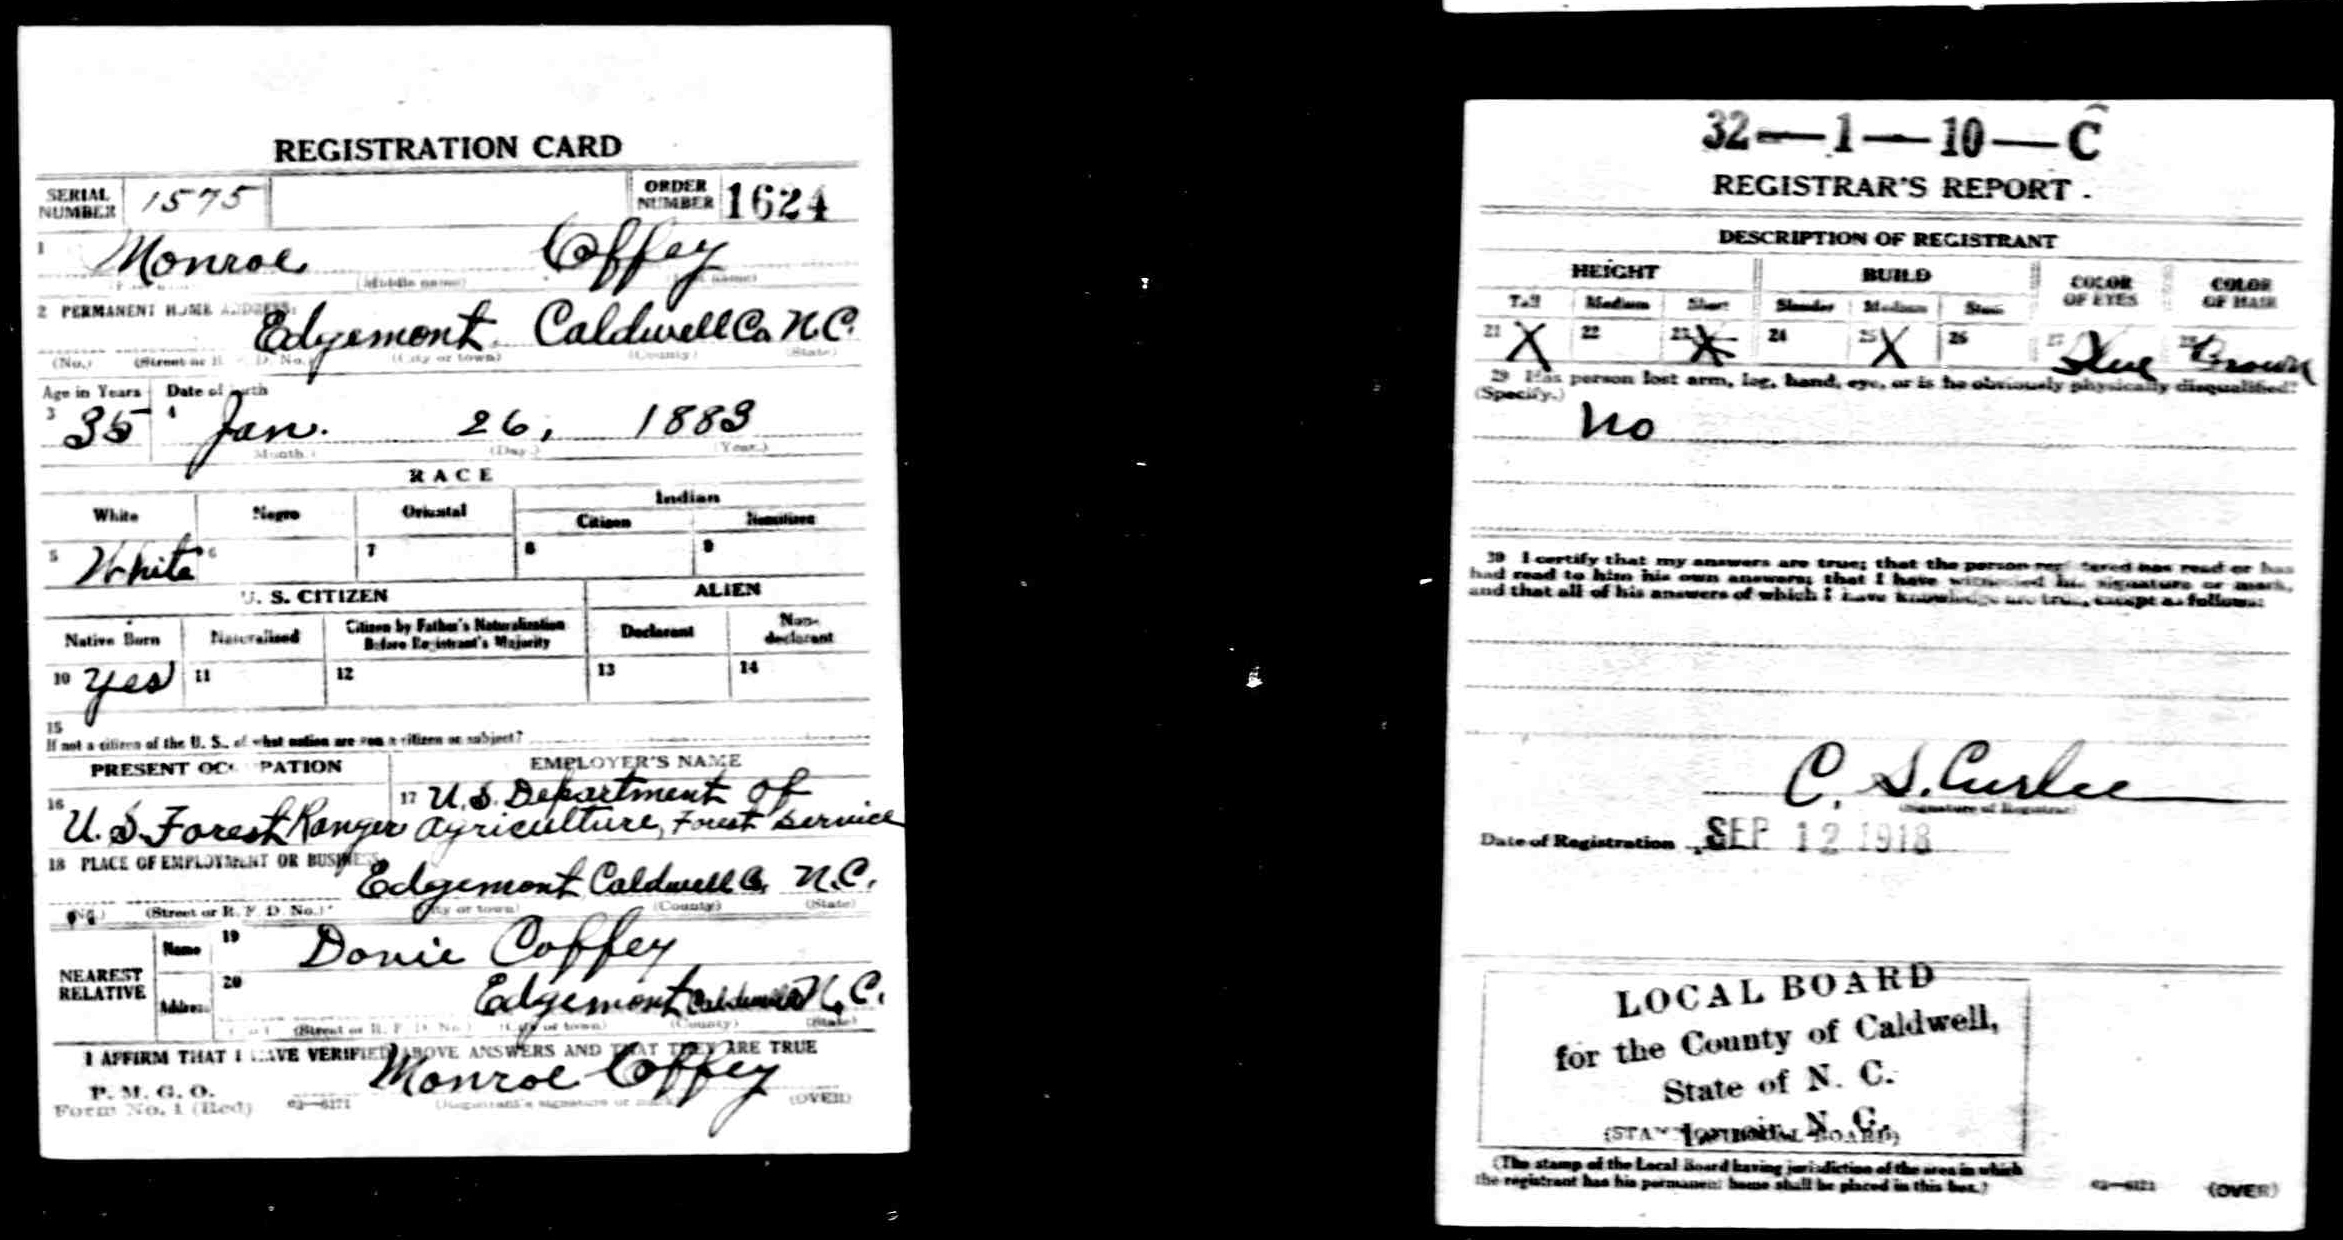 REGISTRATION CARD
SERIAL NUMBER 1575 ORDER NUMBER 1624
1 Monroe Coffey
(Middle name)
2 PERMANENT HOME ADDRESS:
Edgemont Caldwell Co. N.C.
(No.) (Street or R. F. D. No.) (City or town) (County) (State)
Age in Years Date of birth
3 35 4 Jan. 26, 1883
Month.) (Day.) (Year.)
RACE
White Negro Oriental Indian
Citizen Noncitizen
5 White 6 7 8 9
U. S. CITIZEN ALIEN
Native Born Naturalized Citizen by Father's Naturalization Before Registrant's Majority Declarant Non-declarant
10 Yes 11 12 13 14
15
If not a citizen of the U. S., of what nation are you a citizen or subject?
PRESENT OCCUPATION EMPLOYER'S NAME
16 U. S. Forest Ranger 17 U. S. Department of
Agriculture, Forest Service
18 PLACE OF EMPLOYMENT OR BUSINESS
Edgemont Caldwell Co. N.C.
(No.) (Street or R. F. D. No.) (City or town) (County) (State)
NEAREST RELATIVE
Name 19 Donie Coffey
Address 20 Edgemont Caldwell Co N.C.
(Street or R. F. D. No.) (City or town) (County) (State)
I AFFIRM THAT I HAVE VERIFIED ABOVE ANSWERS AND THAT THEY ARE TRUE
P. M. G. O.
Form No. 1 (Red) 03—6171 Monroe Coffey
(Registrant's signature or mark) (OVER)
32—1—10—C
REGISTRAR'S REPORT.
DESCRIPTION OF REGISTRANT
HEIGHT BUILD COLOR OF EYES COLOR OF HAIR
Tall Medium Short Slender Medium Stout
21 X 22 23 X 24 25 X 26 27 Blue 28 Brown
29 Has person lost arm, leg, hand, eye, or is he obviously physically disqualified?
(Specify.)
No
30 I certify that my answers are true; that the person registered has read or has
had read to him his own answers; that I have witnessed his signature or mark,
and that all of his answers of which I have knowledge are true, except as follows:
C. S. Curlee
(Signature of Registrar)
Date of Registration SEP 12 1918
LOCAL BOARD
for the County of Caldwell,
State of N. C.
N. C.
(The stamp of the Local Board having jurisdiction of the area in which
the registrant has his permanent home shall be placed in this box.)
03—6171 (OVER)